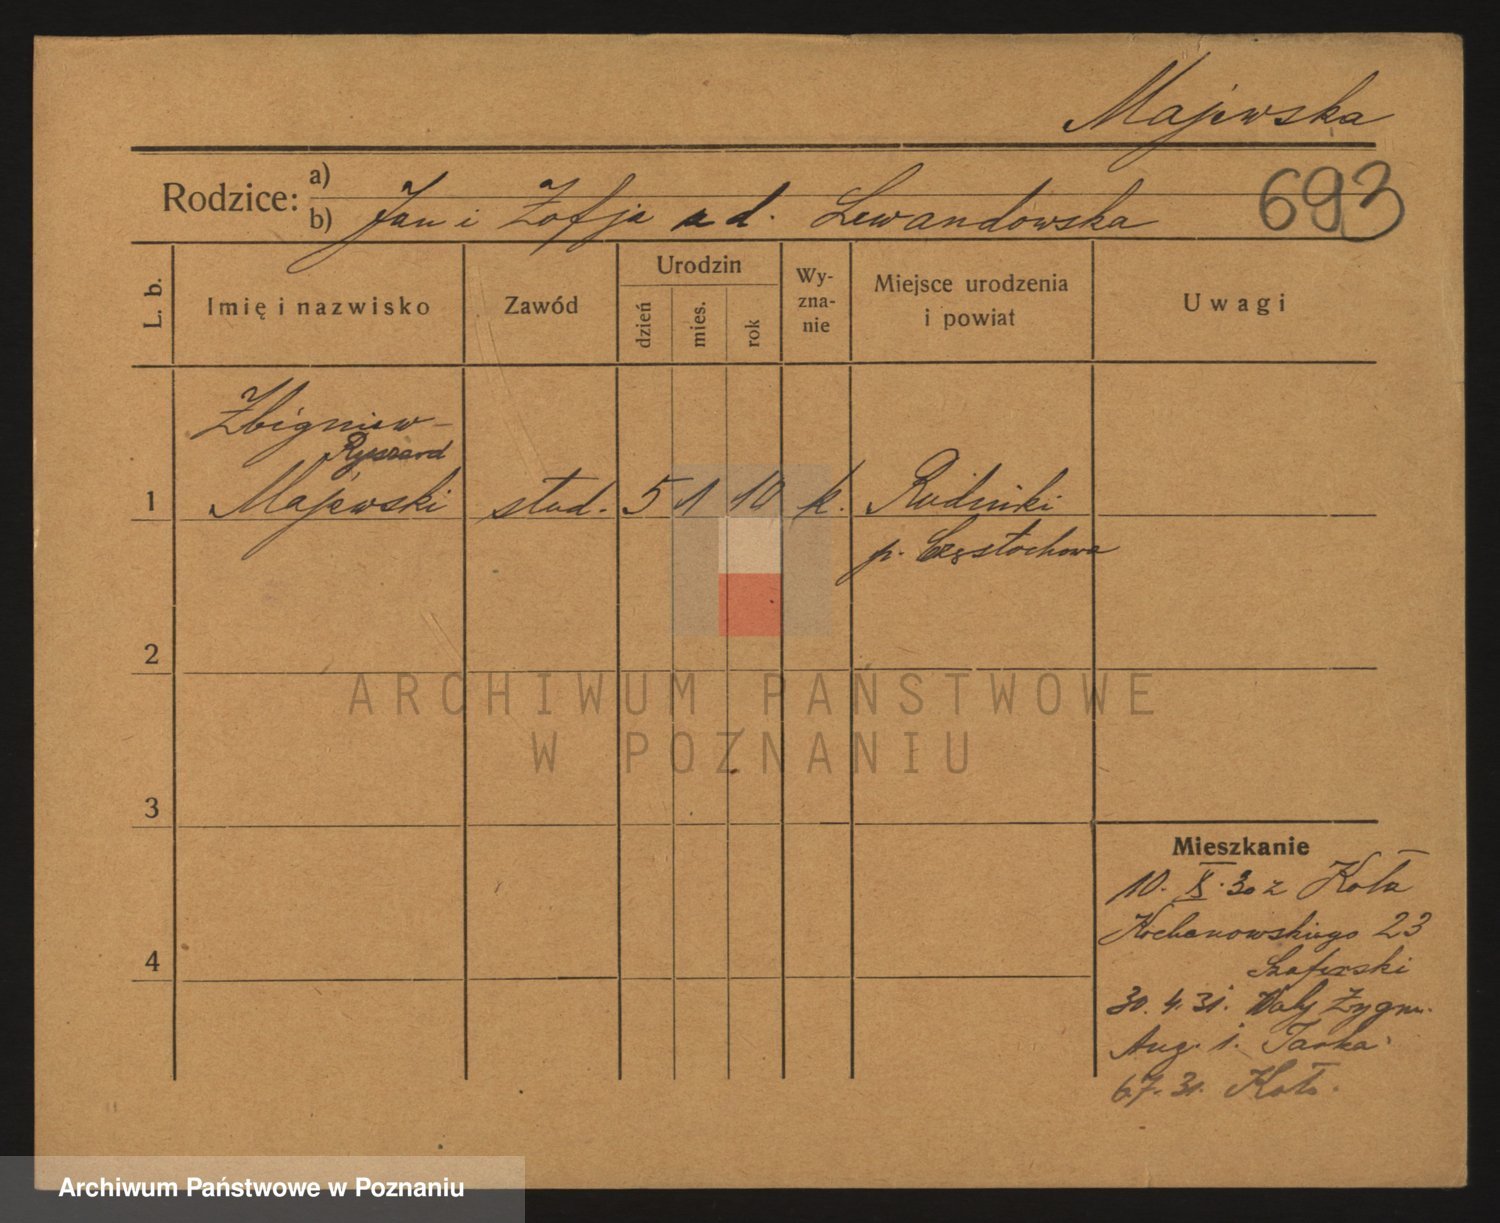 Majewska
Rodzice: a)
b) Jan i Zofja z d. Lewandowska
693
L. b.
Imię i nazwisko
Zawód
Urodzin
dzień
mies.
rok
Wy-
zna-
nie
Miejsce urodzenia
i powiat
Uwagi
Zbigniew-
Ryszard
1 Majewski stud. 5 1 10 k. Rudniki
p. Częstochowa
2
ARCHIWUM PAŃSTWOWE
W POZNANIU
3
4
Mieszkanie
10. X. 30 z Koła
Kochanowskiego 23
Szaferski
30. 4. 31. Wały Zygm.
Aug. 1.
6.7. 31. Koło.
Archiwum Państwowe w Poznaniu